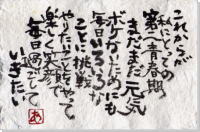 これからだ
私にとっての
第二青春期
まだまだ元気
ボケないためにも
毎日いろいろな
ことに挑戦
やりたいこと能って
楽しく笑顔で
毎日過ごして
いきたい
あ